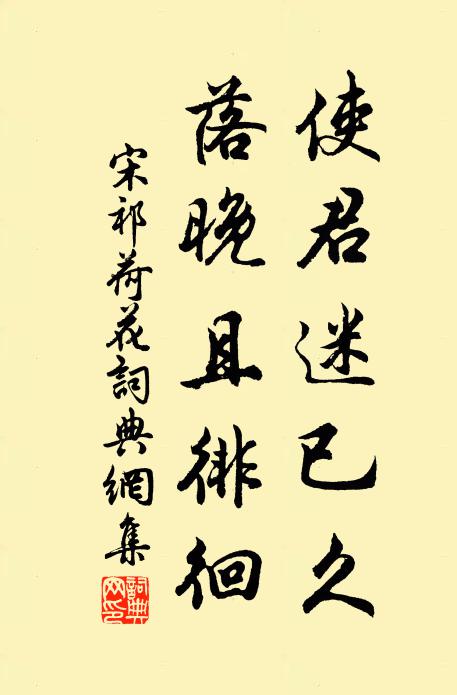 使君迷已久
落晚且徘徊
宋祁荷花詞典網集
詞典網印